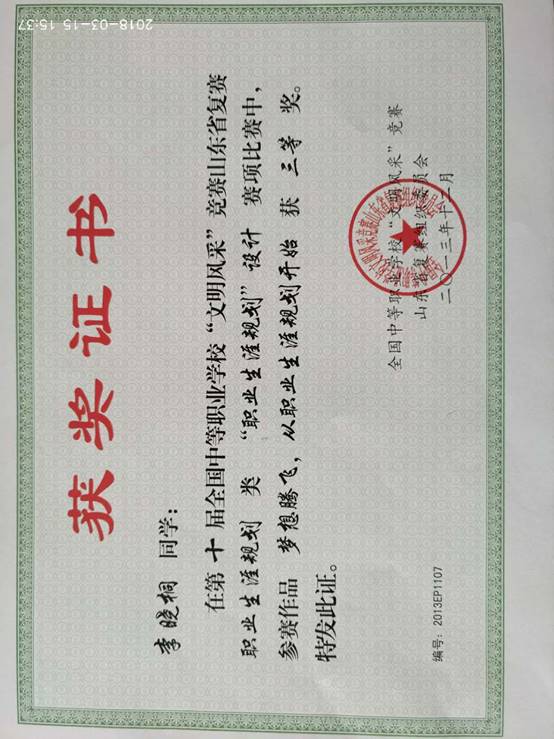 获奖证书
李晓桐 同学：
在第 十 届全国中等职业学校“文明风采”竞赛山东省复赛
职业生涯规划 类 “职业生涯规划”设计 赛项比赛中，
参赛作品 梦想腾飞，从职业生涯规划开始 获 三等 奖。
特发此证。
全国中等职业学校“文明风采”竞赛
山东省复赛组织委员会
二〇一三年十二月
编号：2013EP1107
2018-03-15 15:37